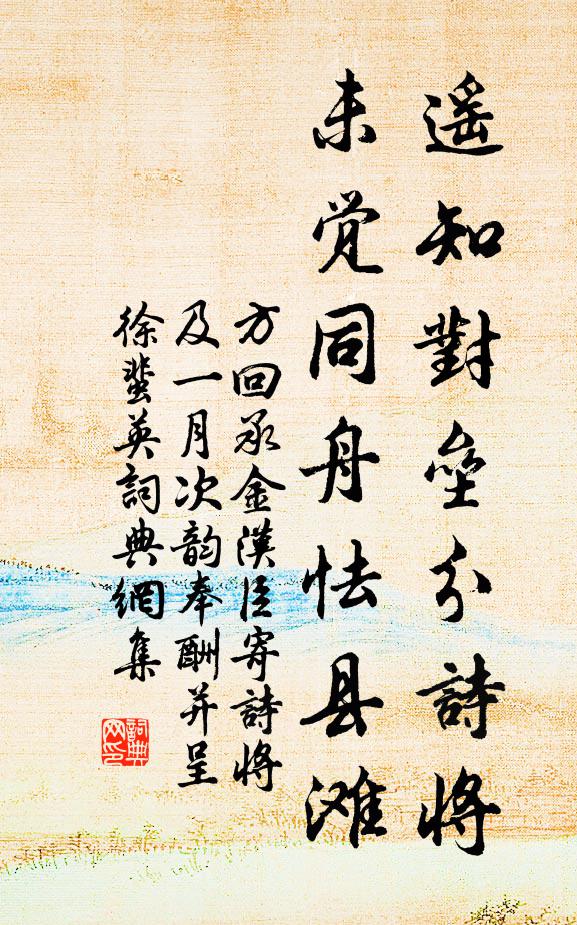 遥知對壘分詩將
未觉同舟怯县滩
方回承金漢臣寄詩將
及一月次韵奉酬并呈
徐蜚英詞典網集
詞典网印